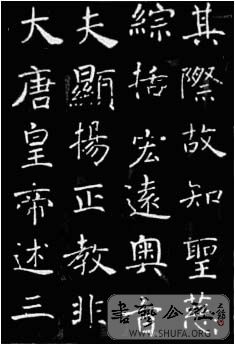 其際故知聖慈
綜括宏遠奧旨
夫顯揚正教非
大唐皇帝述三
書藝公社
WWW.SHUFA.ORG